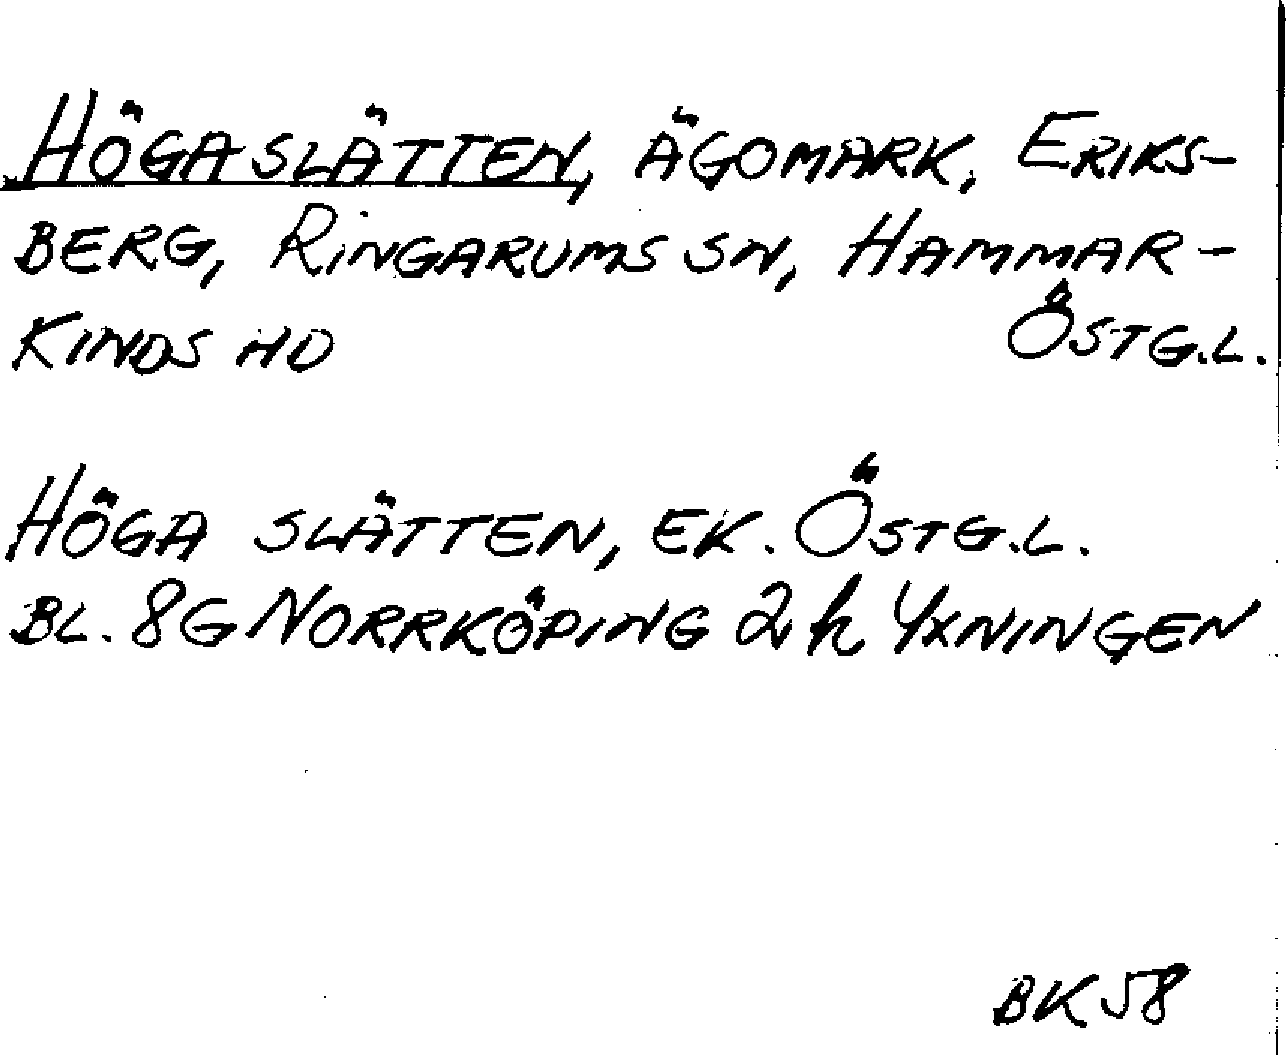 HÖGA SLÄTTEN, ÄGOMARK, ERIKS-
BERG, RINGARUMS SN, HAMMAR-
KINDS HD ÖSTG.L.
HÖGA SLÄTTEN, EK. ÖSTG.L.
BL. 8G NORRKÖPING 2h YXNINGEN
BK 58